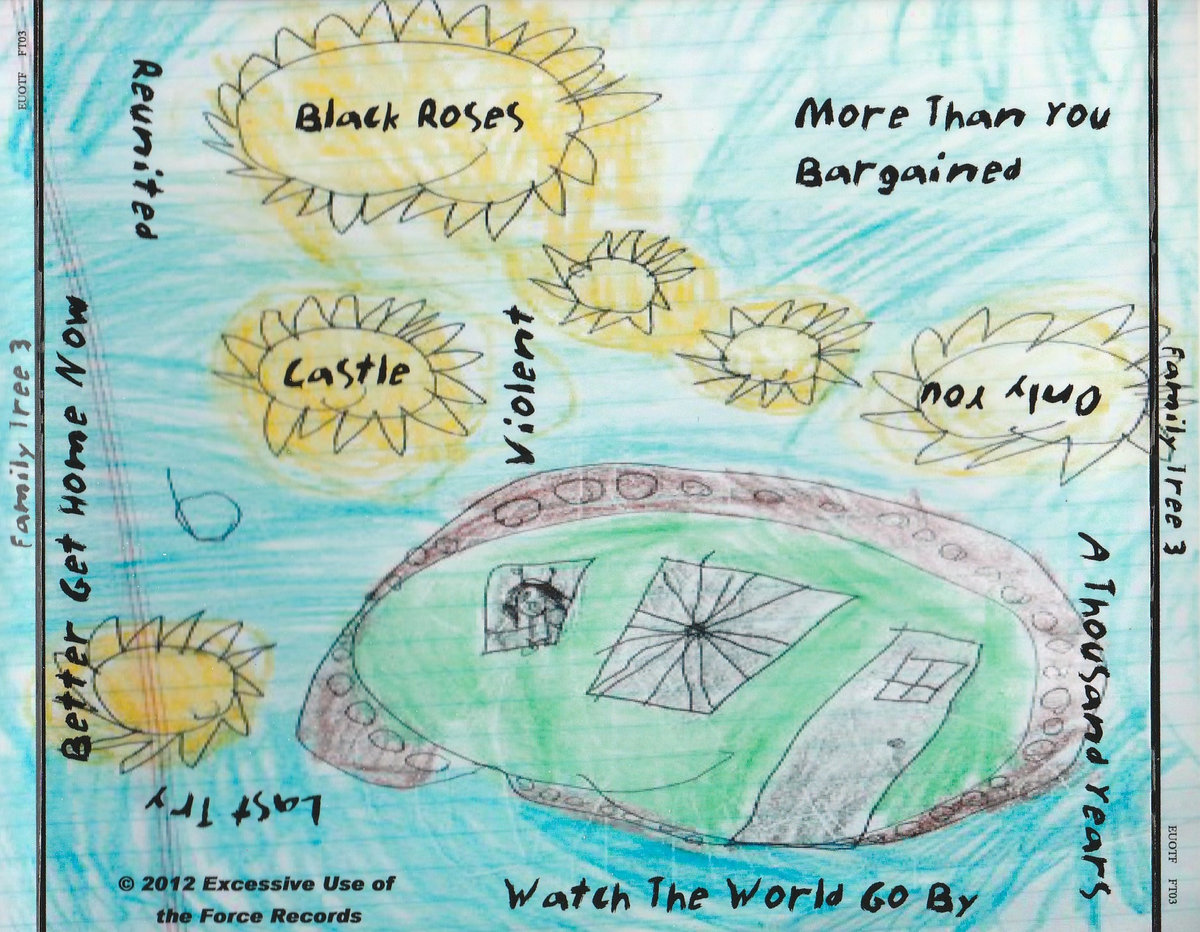 EUOTF FT03
Family Tree 3
Reunited
Black Roses
More Than You
Bargained
Better Get Home Now
Castle
Violent
Only You
A Thousand Years
Last Try
Watch The World Go By
© 2012 Excessive Use of
the Force Records
Family Tree 3
EUOTF FT03